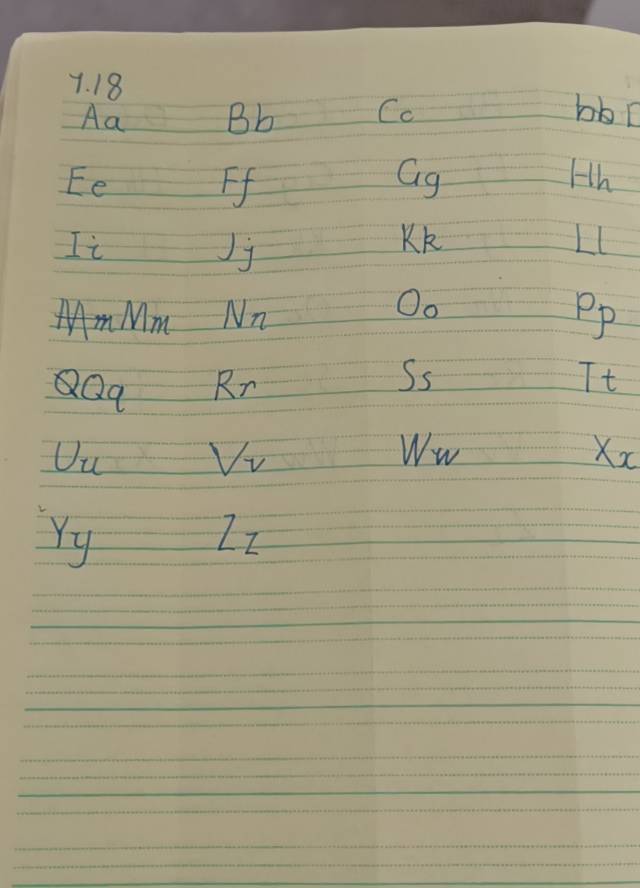 7.18
Aa Bb Cc bb D
Ee Ff Gg Hh
Ii Jj Kk Ll
Mm Mm Nn Oo Pp
QQq Rr Ss Tt
Uu Vv Ww Xx
Yy Zz